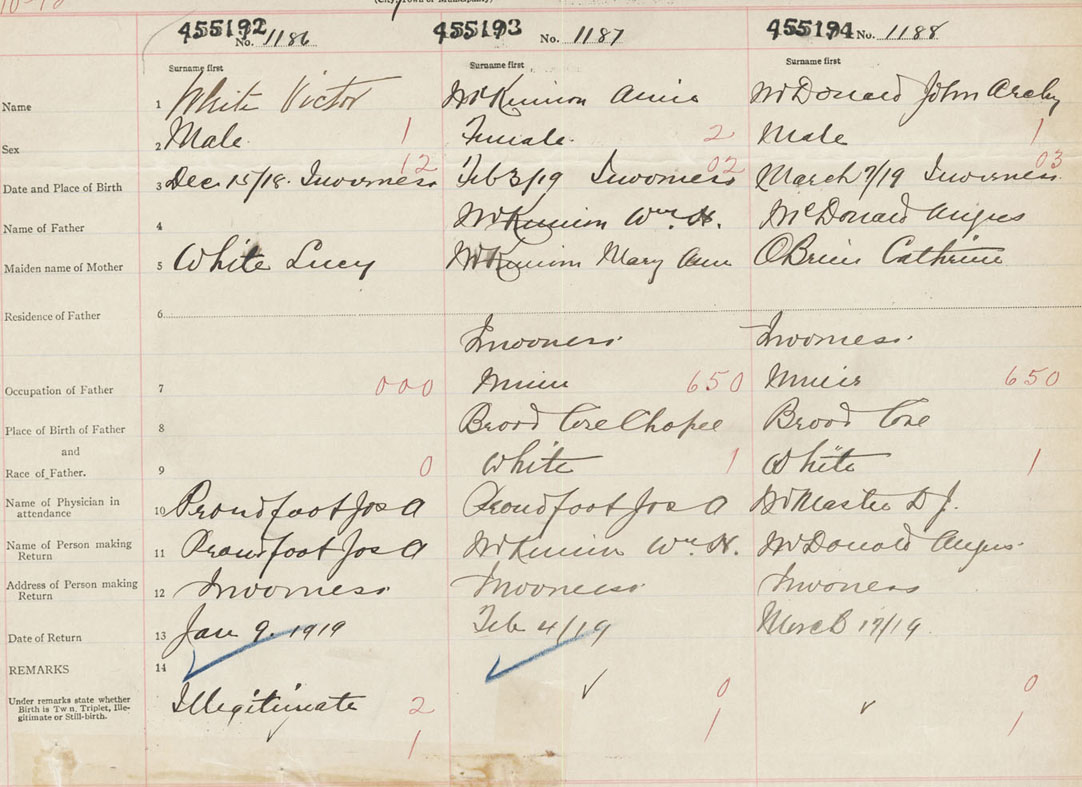 (City, Town or Municipality)
455192 No. 1186 455193 No. 1187 455194 No. 1188
Surname first Surname first Surname first
Name 1 White Victor McKinnon Annie McDonald John Archy
Sex 2 Male 1 Female 2 Male 1
12 02 03
Date and Place of Birth 3 Dec 15/18. Inverness Feb 3/19 Inverness March 7/19 Inverness
Name of Father 4 McKinnon Wm. H. McDonald Angus
Maiden name of Mother 5 White Lucy McKinnon Mary Ann O'Brien Cathrine
Residence of Father 6
Inverness Inverness
Occupation of Father 7 000 Miner 650 Miner 650
Place of Birth of Father 8 Broad Cove Chapel Broad Cove
and
Race of Father. 9 0 White 1 White 1
Name of Physician in
attendance 10 Proudfoot Jos A Proudfoot Jos A McMaster D J.
Name of Person making
Return 11 Proudfoot Jos A McKinnon Wm. H. McDonald Angus
Address of Person making
Return 12 Inverness Inverness Inverness
Date of Return 13 Jan 9. 1919 Feb 4/19 March 17/19.
REMARKS 14
Under remarks state whether
Birth is Twn, Triplet, Ille-
gitimate or Still-birth. Illegitimate 2 0 0
1 1 1